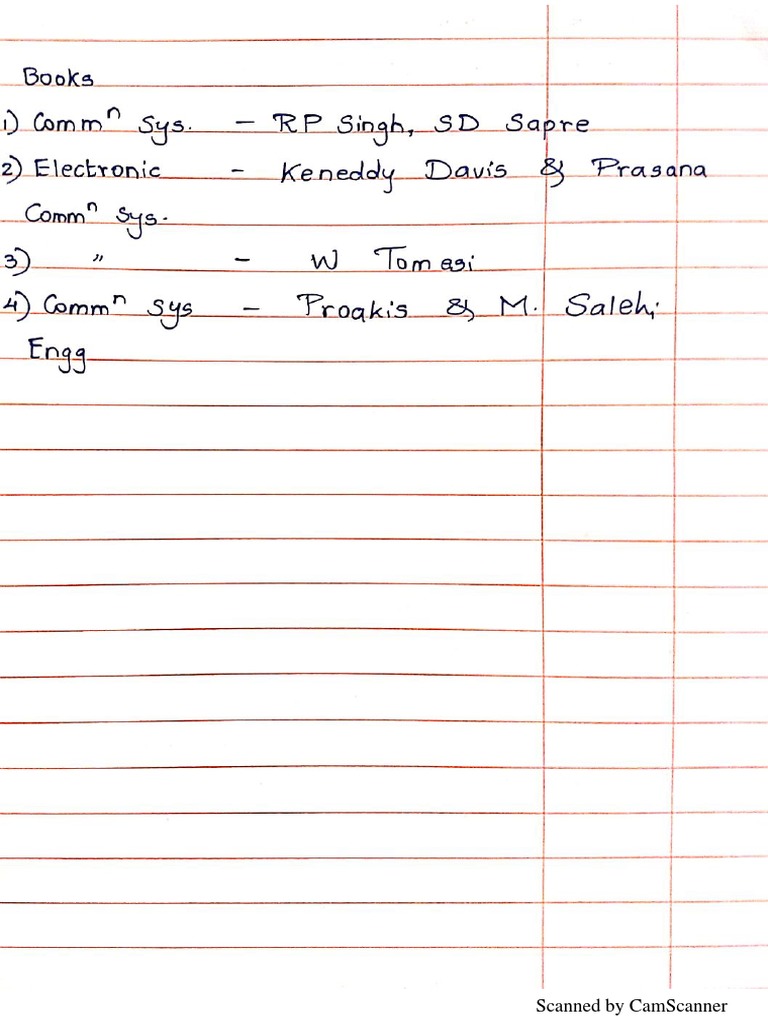 Books
1) Commⁿ Sys. - RP Singh, SD Sapre
2) Electronic - Keneddy Davis & Prasana
Commⁿ Sys.
3) " - W Tomasi
4) Commⁿ Sys - Proakis & M. Salehi
Engg
Scanned by CamScanner